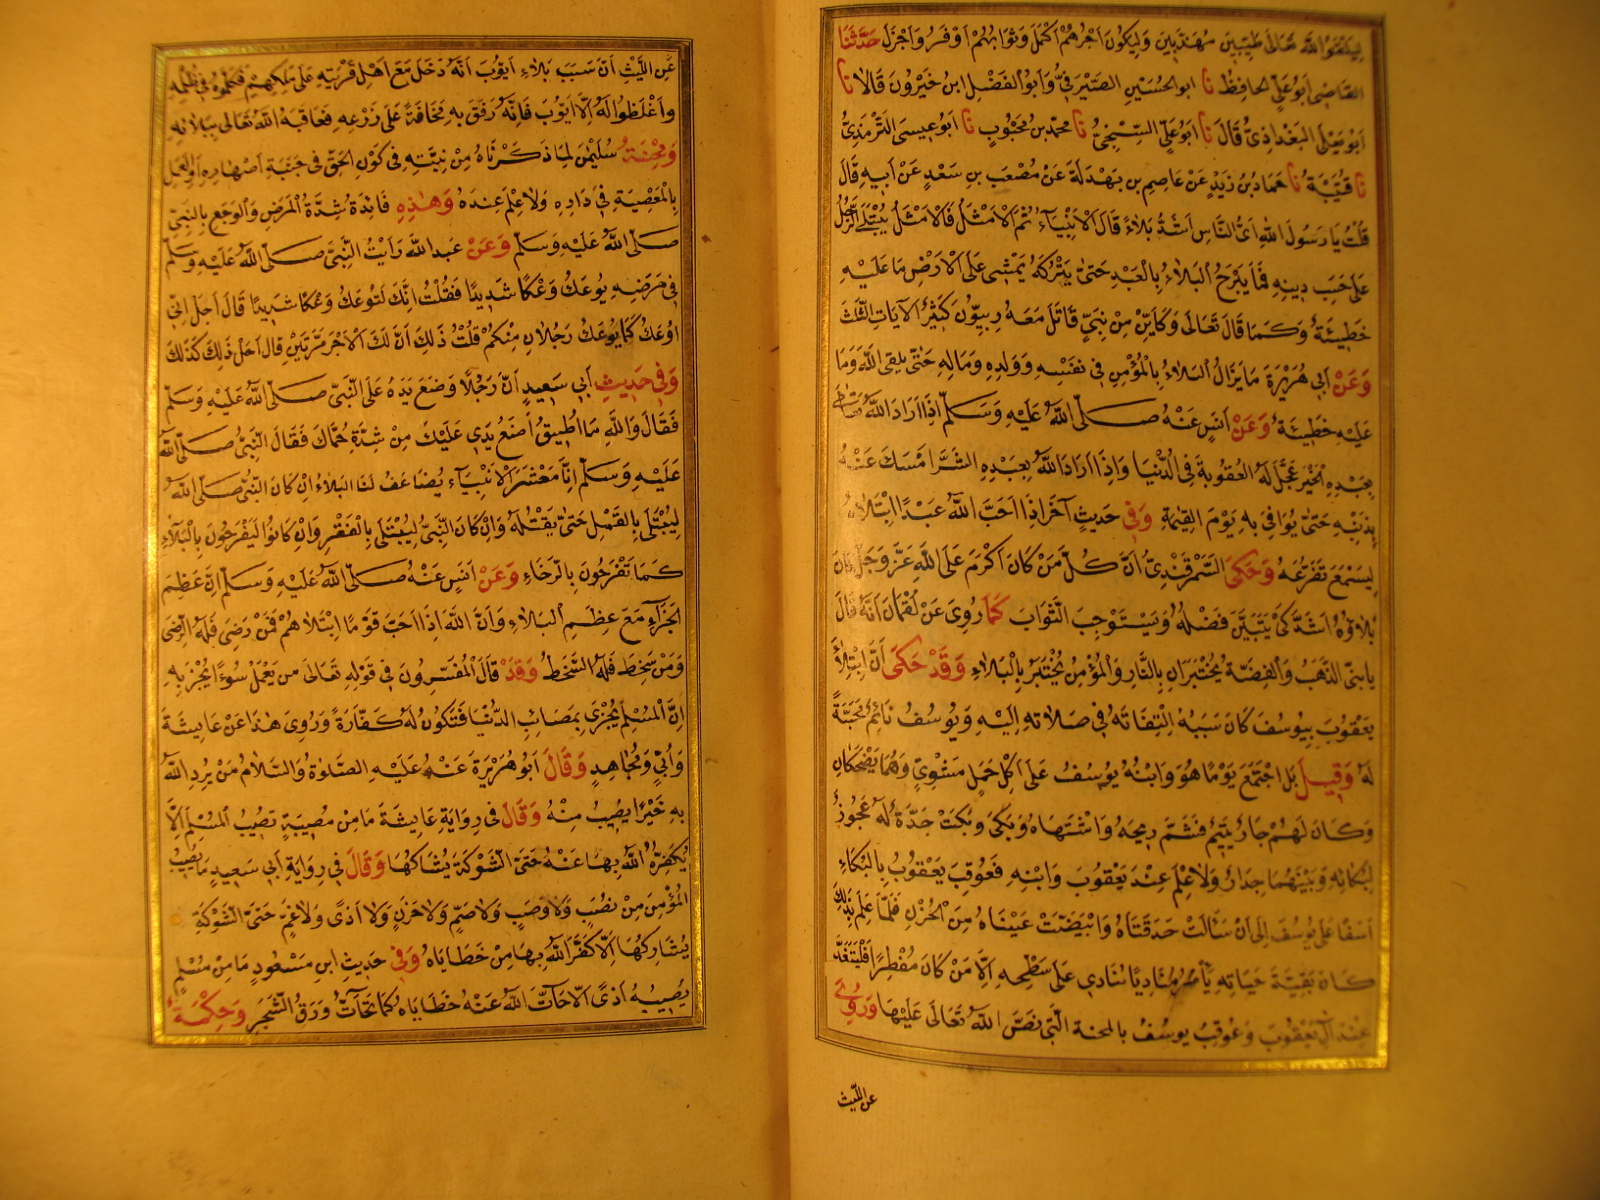 ليلقوا الله تعالى طيبين مهذبين وليكون اجرهم اكمل وثوابهم اوفر واجزل حدثنا
القاضي ابو علي الحافظ نا ابو الحسين الصيرفي وابو الفضل ابن خيرون قالا نا
ابو يعلى البغدادي قال نا ابو علي السنجي نا محمد بن محبوب نا ابو عيسى الترمذي
نا قتيبة نا حماد بن زيد عن عاصم بن بهدلة عن مصعب بن سعد عن أبيه قال
قلت يا رسول الله اى الناس اشد بلاء قال الانبياء ثم الامثل فالامثل يبتلى الرجل
على حسب دينه فما يبرح البلاء بالعبد حتى يتركه يمشي على الارض ما عليه
خطيئة وكما قال تعالى وكاين من نبي قاتل معه ربيون كثير الآيات الثلث
وعن ابي هريرة ما يزال البلاء بالمؤمن في نفسه وولده وماله حتى يلقى الله وما
عليه خطيئة وعن انس عنه صلى الله عليه وسلم اذا اراد الله
بعبده الخير عجل له العقوبة في الدنيا واذا اراد الله بعبده الشر امسك عنه
بذنبه حتى يوافي به يوم القيمة وفي حديث آخر اذا احب الله عبدا ابتلاه
ليسمع تضرعه وحكى السمرقندي ان كل من كان اكرم على الله عز وجل كان
بلاؤه اشد كى يتبين فضله ويستوجب الثواب كما روى عن لقمان انه قال
يا بني الذهب والفضة يختبران بالنار والمؤمن يختبر بالبلاء وقد حكى ان ابتلاء
يعقوب بيوسف كان سببه التفاته في صلاته اليه ويوسف نائم محبة
له وقيل بل اجتمع يوما هو وابنه يوسف على اكل حمل مشوي وهما يضحكان
وكان لهم جار يتيم فشم ريحه واشتهاه وبكى وبكت جدة له عجوز
لبكائه وبينهما جدار ولا علم عند يعقوب وابنه فعوقب يعقوب بالبكاء
اسفا على يوسف الى ان سالت حدقتاه وابيضت عيناه من الحزن فلما علم بذلك
كان بقية حياته يأمر مناديا ينادي على سطحه الا من كان مفطرا فليتغد
عند آل يعقوب وعوقب يوسف بالمحنة التي نص الله تعالى عليها وروي
عن الليث
عن الليث أن سبب بلاء ايوب انه دخل مع اهل قريته على ملكهم فكلموه في ظلمه
واغلظوا له الا ايوب فانه رفق به مخافة على زرعه فعاقبه الله تعالى ببلائه
ومحنة سليمن لما ذكرناه من نيته في كون الحق في جنبة اصهاره او للعمل
بالمعصية في داره ولا علم عنده وهذه فائدة شدة المرض والوجع بالنبي
صلى الله عليه وسلم وعن عبد الله رايت النبي صلى الله عليه وسلم
في مرضه يوعك وعكا شديدا فقلت انك لتوعك وعكا شديدا قال اجل اني
اوعك كما يوعك رجلان منكم قلت ذلك ان لك الاجر مرتين قال اجل ذلك كذلك
وفي حديث أبي سعيد ان رجلا وضع يده على النبي صلى الله عليه وسلم
فقال والله ما اطيق أضع يدي عليك من شدة حماك فقال النبي صلى الله
عليه وسلم إنا معشر الانبياء يضاعف لنا البلاء ان كان النبي صلى الله
ليبتلى بالقمل حتى يقتله وان كان النبي ليبتلى بالفقر وان كانوا ليفرحون بالبلاء
كما تفرحون بالرخاء وعن انس عنه صلى الله عليه وسلم ان عظم
الجزاء مع عظم البلاء وان الله اذا احب قوما ابتلاهم فمن رضي فله الرضى
ومن سخط فله السخط وقد قال المفسرون في قوله تعالى من يعمل سوءا يجز به
ان المسلم يجزى بمصائب الدنيا فتكون له كفارة وروى هذا عن عايشة
وأبي ومجاهد وقال ابو هريرة عنه عليه الصلوة والسلام من يرد الله
به خيرا يصب منه وقال في رواية عايشة ما من مصيبة تصيب المسلم الا
يكفر الله بها عنه حتى الشوكة يشاكها وقال في رواية ابي سعيد ما يصيب
المؤمن من نصب ولا وصب ولا هم ولا حزن ولا اذى ولا غم حتى الشوكة
يشاكها الا كفر الله بها من خطاياه وفي حديث ابن مسعود ما من مسلم
يصيبه اذى الا حات الله عنه خطاياه كما تحات ورق الشجر وحكمة